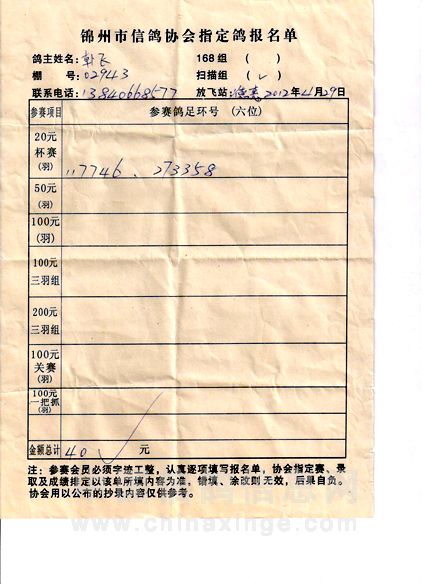 锦州市信鸽协会指定鸽报名单
鸽主姓名：韩飞 168组 （ ）
棚 号：02943 扫描组 （√）
联系电话：13840668577 放飞站： 2012年4月29日
参赛项目 参赛鸽足环号 （六位）
20元
杯赛
（羽）
117746、273358
50元
（羽）
100元
（羽）
100元
三羽组
200元
三羽组
100元
关赛
（羽）
100元
一把抓
（羽）
金额总计 40 元
注：参赛会员必须字迹工整，认真逐项填写报名单，协会指定赛、录
取及成绩排定以该单所填内容为准。错填、涂改则无效，后果自负。
协会用以公布的抄录内容仅供参考。
www.chinaxinge.com